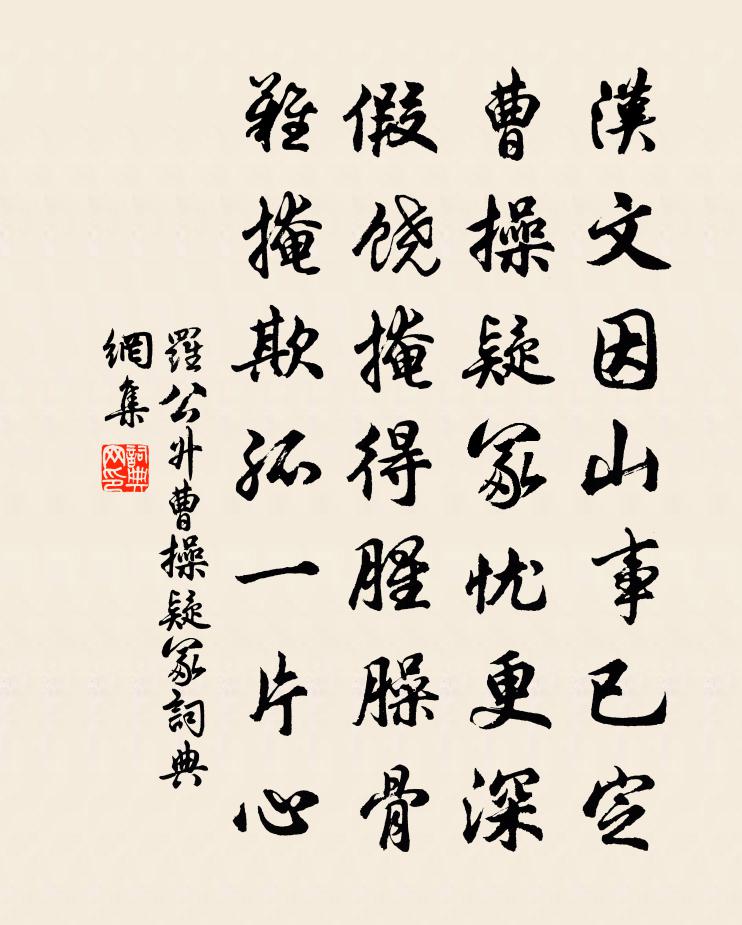 漢文因山事已定
曹操疑冢忧更深
假饶掩得腥臊骨
難掩欺孤一片心
羅公升曹操疑冢詞典
網集
詞典
网印